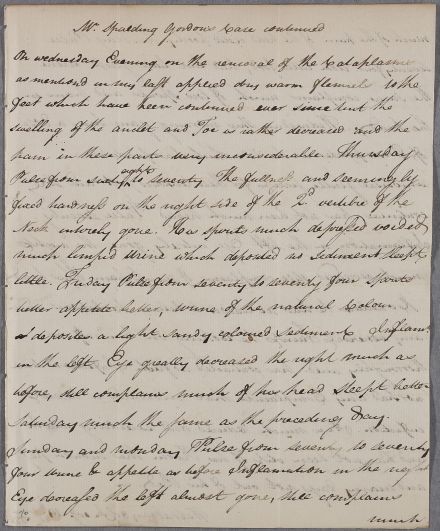 Mr. Spalding Gordons Case continued
On wednesday Evening on the removal of the Cataplasms
as mentiond in my last applied dry warm flannels to the
feet which have been continued ever since but the
swelling of the ancles and Toe is rather decreased and the
pain in these parts very inconsiderable. Thursday
Pulse from sixty eight to seventy The fullness and seemingly
fixed hardness on the right side of the 2d vertibre of the
Neck intirely gone. His spirits much depressed voided
much limpid urine which deposited no sediment slept
little. Friday Pulse from seventy to seventy four Spirits
better appetite better, urine of the natural Colour
& deposites a light sandy coloured sediment Inflam:
in the left Eye greatly decreased the right much as
before, still complains much of his head Sleept better
Saturday much the same as the preceding day.
Sunday and monday Pulse from seventy to seventy
four urine & appetite as before Inflamation in the right
Eye decreased the left almost gone, still complains
much